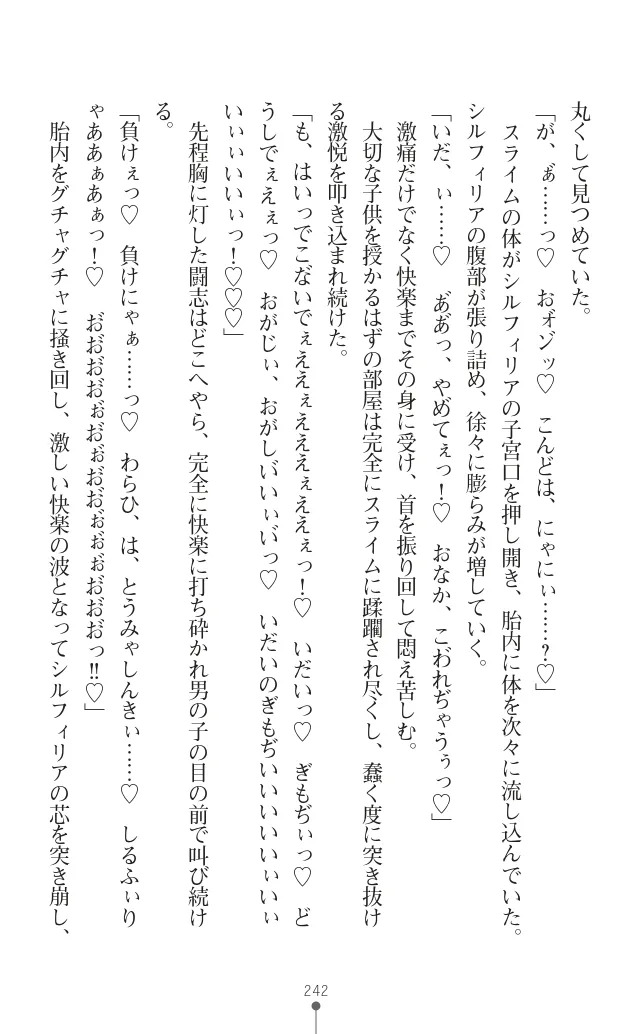 丸くして見つめていた。
「が、あ゙……っ♡　おォゾッ♡　こんどは、にゃにぃ……？♡」
スライムの体がシルフィリアの子宮口を押し開き、胎内に体を次々に流し込んでいた。
シルフィリアの腹部が張り詰め、徐々に膨らみが増していく。
「いだ、ぃ……♡　あ゙あ゙っ、やめてぇっ！♡　おなか、こわれぢゃうぅっ♡」
激痛だけでなく快楽までその身に受け、首を振り回して悶え苦しむ。
大切な子供を授かるはずの部屋は完全にスライムに蹂躙され尽くし、蠢く度に突き抜け
る激悦を叩き込まれ続けた。
「も、はいっでこないでぇええぇえええぇええぇっ！♡　いだいっ♡　ぎもぢぃっ♡　ど
うしでぇえぇっ♡　おがじぃ、おがしい゙いぃい゙っ♡　いだいのぎもぢいいいいいぃいぃ
いぃぃいいぃっ！♡♡♡」
先程胸に灯した闘志はどこへやら、完全に快楽に打ち砕かれ男の子の目の前で叫び続け
る。
「負けぇっ♡　負けにゃぁ……っ♡　わらひ、は、とうみゃしんきぃ……♡　しるふぃり
ゃああぁあぁっ！♡　お゙お゙お゙お゙ぉお゙ぉお゙お゙ぉぉぉお゙お゙お゙っ‼♡」
胎内をグチャグチャに掻き回し、激しい快楽の波となってシルフィリアの芯を突き崩し、
242